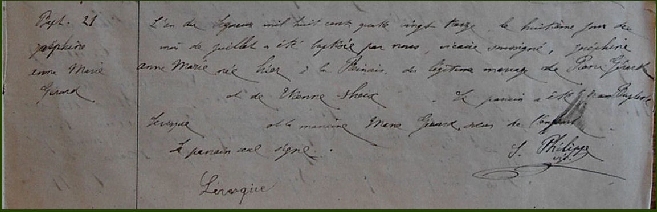 Bapt. 21
Joséphine
Anne Marie
Girard
L'an du Seigneur mil huit cent quatre vingt treize le huitième jour du
mois de juillet a été baptisée par nous, vicaire soussigné, Joséphine
Anne Marie née hier à la du légitime mariage de Pierre Girard
et de Etienne Le parrain a été
Levesque et la marraine Marie Girard, soeur de l'enfant
Le parrain seul signe.
J. Philippe
Levesque